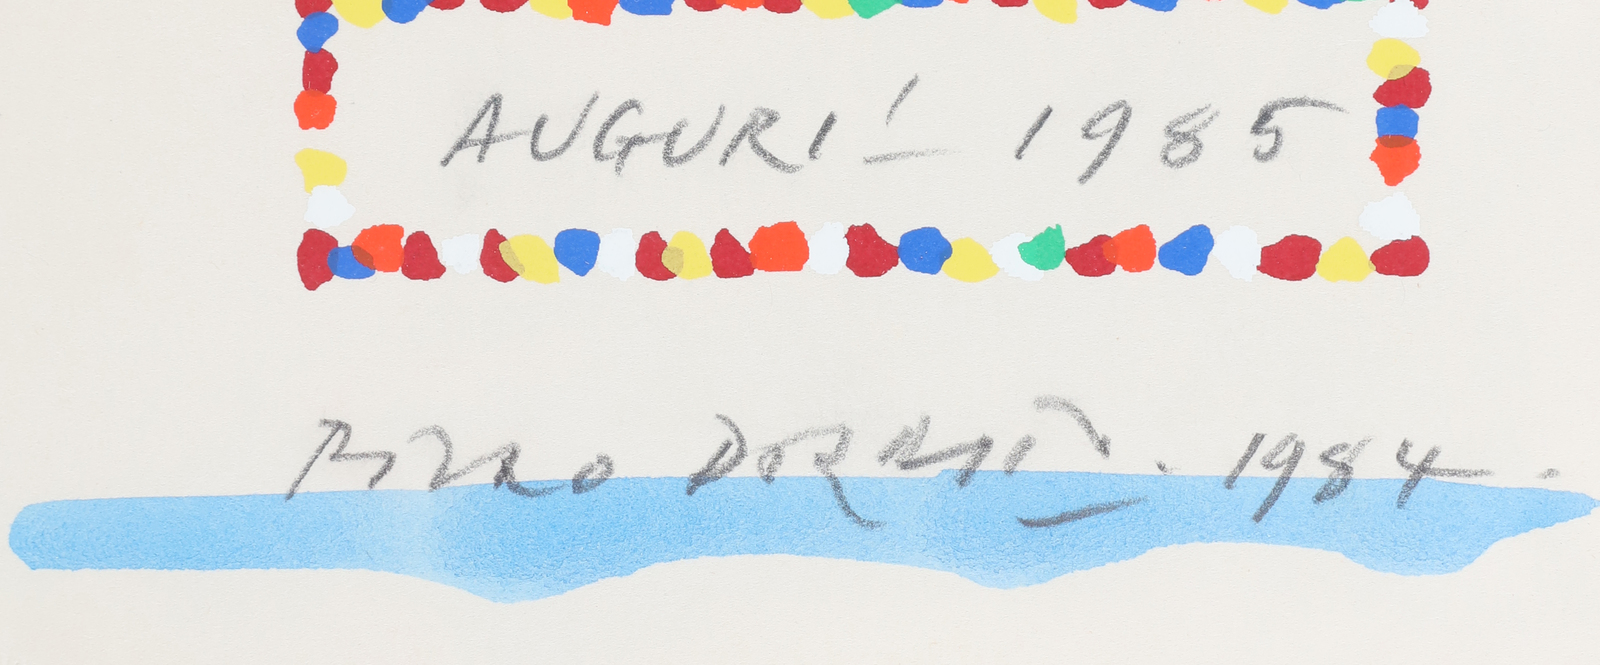 AUGURI! 1985
PIERO DORAZIO. 1984.